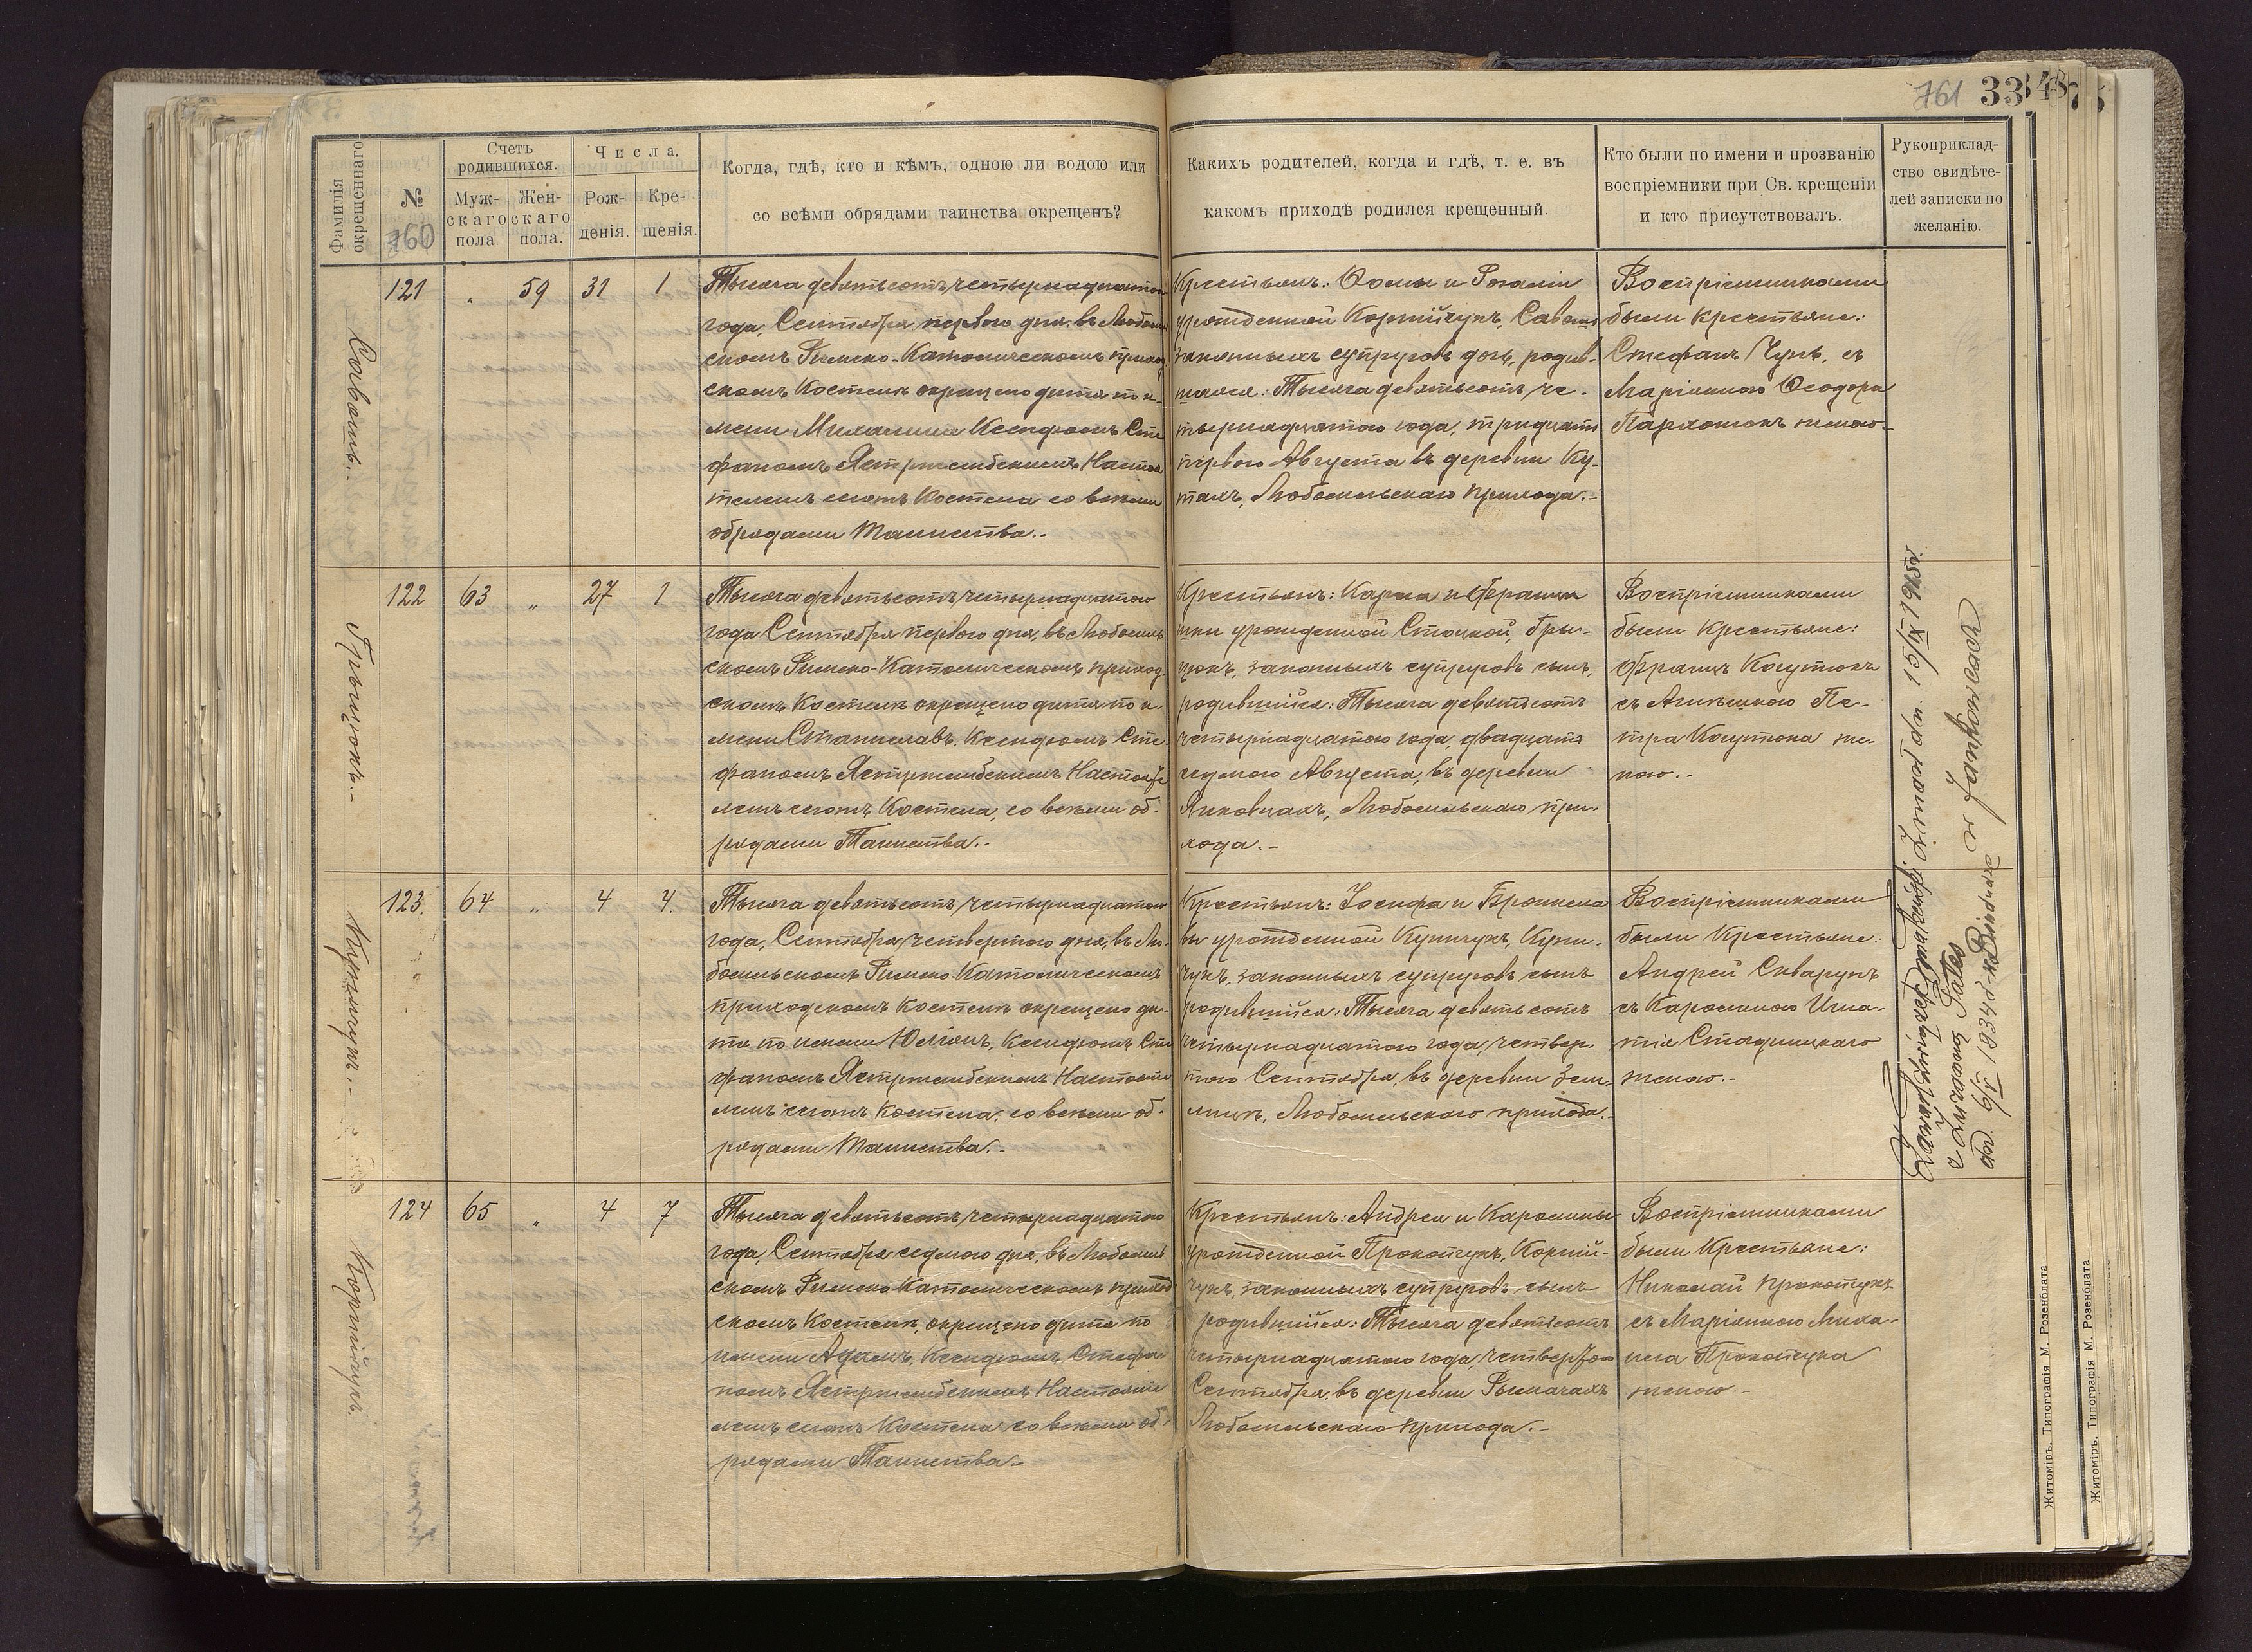 761 33
Фамилія окрещеннаго
№
760
Счетъ родившихся.
Мужскаго пола.
Женскаго пола.
Числа.
Рожденія.
Крещенія.
Когда, гдѣ, кто и кѣмъ, одною ли водою или
со всѣми обрядами таинства окрещенъ?
Какихъ родителей, когда и гдѣ, т. е. въ
какомъ приходѣ родился крещенный.
Кто были по имени и прозванію
воспріемники при Св. крещеніи
и кто присутствовалъ.
Рукоприклад-
ство свидѣте-
лей записки по
желанію.
Савошъ.
121 " 59 31 1
Тысяча девятьсотъ четырнадцатого
года, Сентября перваго дня, въ Любомль
скомъ Римско-Католическомъ приход
скомъ Костелѣ окрещено дитя по и-
мени Михалина Ксендзомъ Сте
фаномъ Ястржембскимъ Настоя
телемъ сего Костела со всѣми
обрядами Таинства.-
Крестьянъ: Ѳомы и Розаліи
урожденной Корнійчукъ, Савошъ
законныхъ супруговъ дочь, родив-
шаяся: Тысяча девятьсотъ че-
тырнадцатого года, тридцать
перваго Августа въ деревни Ку-
тахъ, Любомльскаго прихода.-
Воспріемниками
были крестьяне:
Стефанъ Чупъ, съ
Маріянною Ѳеодора
Пархомюкъ женою.-
Грыцюкъ.-
122 63 " 27 1
Тысяча девятьсотъ четырнадцатого
года Сентября перваго дня, въ Любомль
скомъ Римско-Католическомъ приход
скомъ Костелѣ окрещено дитя по и-
мени Станиславъ, Ксендзомъ Сте-
фаномъ Ястржембскимъ Настояте
лемъ сего Костела, со всѣми об-
рядами Таинства.-
Крестьянъ: Карла и Франци
шки урожденной Стоцкой, Гры-
цюкъ, законныхъ супруговъ сынъ,
родившійся: Тысяча девятьсотъ
четырнадцатого года, двадцать
седьмого Августа, въ деревни
Янковцахъ, Любомльскаго при-
хода.-
Воспріемниками
были Крестьяне:
Францъ Коцутюкъ
съ Агнѣшкою Пе-
тра Коцутюка же-
ною.-
Купичукъ.-
123. 64 " 4 4.
Тысяча девятьсотъ четырнадцатого
года, Сентября четвертого дня, въ Лю-
бомльскомъ Римско-Католическомъ
приходскомъ Костелѣ окрещено ди-
тя по имени Юліянъ, Ксендзомъ Сте
фаномъ Ястржембскимъ Настояте
лемъ сего Костела, со всѣми об-
рядами Таинства.-
Крестьянъ: Іосифа и Бронисла
вы урожденной Купичукъ, Купи-
чукъ, законныхъ супруговъ сынъ
родившійся: Тысяча девятьсотъ
четырнадцатого года, четвер-
того Сентября, въ деревни Зем-
лицѣ, Любомльскаго прихода.-
Воспріемниками
были Крестьяне:
Андрей Скварукъ
съ Каролиною Игна-
тія Стадницкаго
женою.-
dn. 15/IX 1945.
dn. 6/V 1934
Корнійчукъ.
124 65 " 4 7
Тысяча девятьсотъ четырнадцатого
года, Сентября седьмого дня, въ Любомль
скомъ Римско-Католическомъ приход
скомъ Костелѣ, окрещено дитя по
имени Адамъ, Ксендзомъ Стефа-
номъ Ястржембскимъ Настояте
лемъ сего Костела со всѣми об-
рядами Таинства.-
Крестьянъ: Андрея и Каролины
урожденной Прокопчукъ, Корній-
чукъ, законныхъ супруговъ сынъ
родившійся: Тысяча девятьсотъ
четырнадцатого года, четвертого
Сентября, въ деревни Рымачахъ
Любомльскаго прихода.-
Воспріемниками
были Крестьяне:
Николай Прокопчукъ
съ Маріянною Миха-
ила Прокопчука
женою.-
Житоміръ, Типографія М. Розенблата
Житоміръ, Типографія М. Розенблата